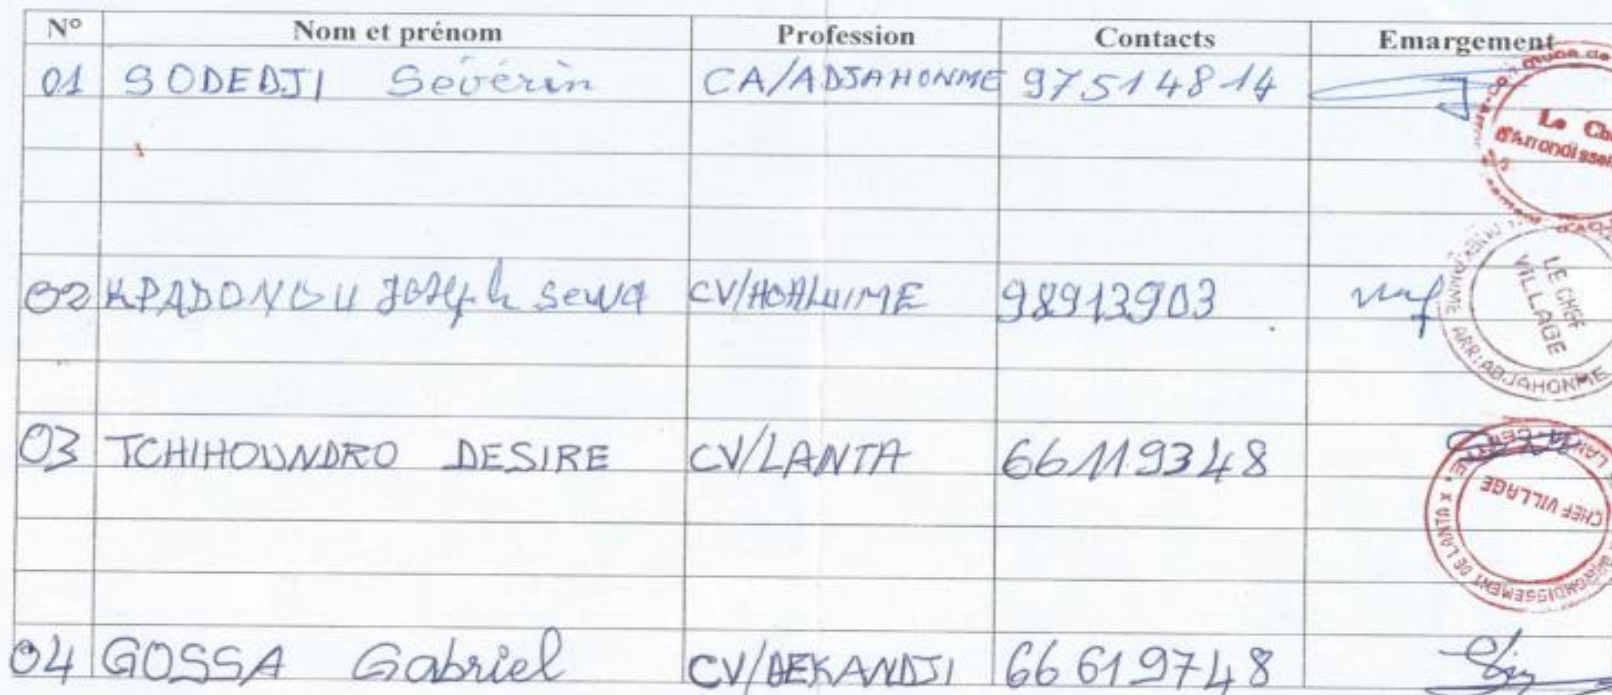 N° Nom et prénom Profession Contacts Emargement
01 SODEDJI Sévérin CA/ADJAHONME 97514814
Le Che
d'Arrondissem
02 KPADONOU Joseph Sewa CV/ 98913903
LE CHEF
VILLAGE
ARR: ADJAHONME
03 TCHIHOUNDRO DESIRE CV/LANTA 66119348
CHEF VILLAGE
ARRONDISSEMENT DE LANTA X
04 GOSSA Gabriel CV/DEKANDJI 66619748